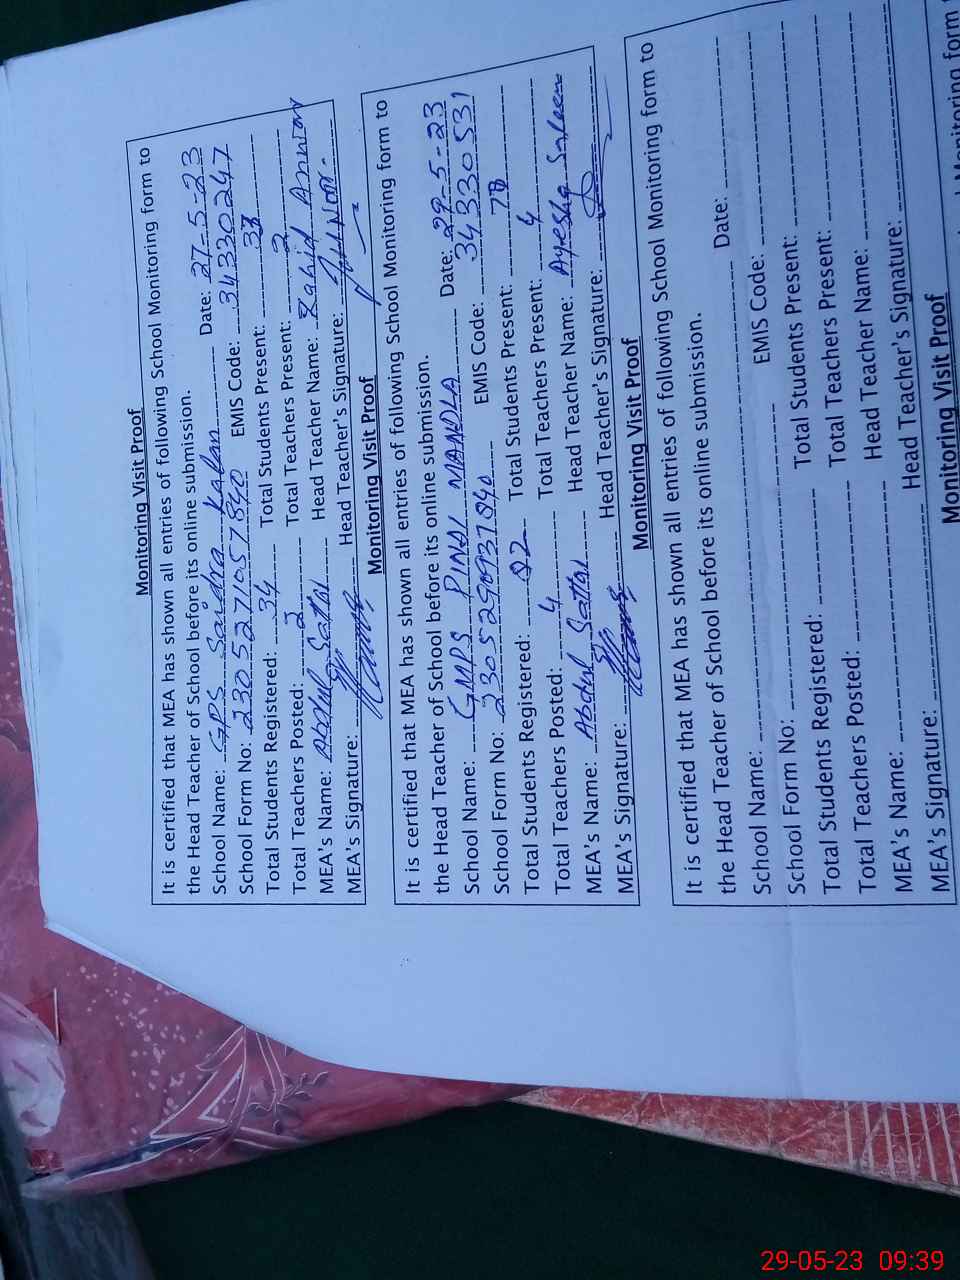 Monitoring Visit Proof
It is certified that MEA has shown all entries of following School Monitoring form to
the Head Teacher of School before its online submission.
School Name: GPS Saidra Kalan Date: 27-5-23
School Form No: 2305271057840 EMIS Code: 34330247
Total Students Registered: 34 Total Students Present: 33
Total Teachers Posted: 2 Total Teachers Present: 2
MEA's Name: Abdul Sattar Head Teacher Name: Zahid Anwar
MEA's Signature: Head Teacher's Signature:
Monitoring Visit Proof
It is certified that MEA has shown all entries of following School Monitoring form to
the Head Teacher of School before its online submission.
School Name: GMPS PINDI MANDLA Date: 29-5-23
School Form No: EMIS Code: 34330531
Total Students Registered: Total Students Present:
Total Teachers Posted: 4 Total Teachers Present: 4
MEA's Name: Abdul Sattar Head Teacher Name: Ayesha Saleem
MEA's Signature: Head Teacher's Signature:
Monitoring Visit Proof
It is certified that MEA has shown all entries of following School Monitoring form to
the Head Teacher of School before its online submission.
School Name: Date:
School Form No: EMIS Code:
Total Students Registered: Total Students Present:
Total Teachers Posted: Total Teachers Present:
MEA's Name: Head Teacher Name:
MEA's Signature: Head Teacher's Signature:
Monitoring Visit Proof
Monitoring form
29-05-23 09:39